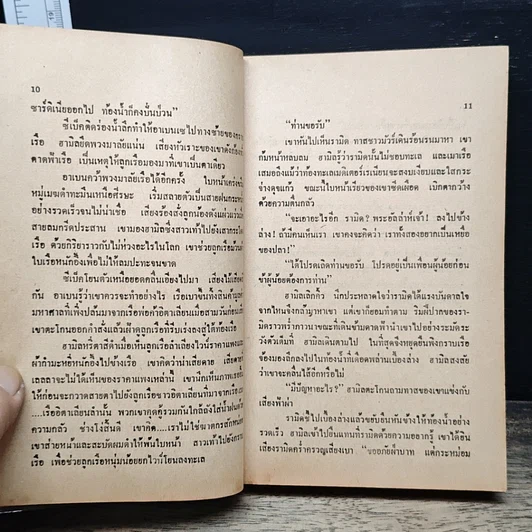 10
ซาร์ดิเนียออกไป ท้องน้ำก็คงปั่นป่วน”
ซีเบ็คดิ่งร่องน้ำลึกทำให้อาเบนเซไปทางซ้ายของกราบ
เรือ ฮามิลยึดพวงมาลัยแน่น เสียงหัวเราะของเขาดังก้อง
ดาดฟ้าเรือ เป็นเหตุให้ลูกเรือมองมาที่เขาเป็นตาเดียว
อาเบนคว้าพวงมาลัยเรือได้อีกครั้ง ใบหน้าคร้าม
หมู่เมฆดำทะมึนเหนือศีรษะ เริ่มสลายตัวเป็นสายฝนกระหน่ำ
อย่างรวดเร็วจนไม่น่าเชื่อ เสียงร้องสั่งลูกน้องดังแผ่วมา
สายลมกรีดประสาน เขามองฮามิลซึ่งสาวเท้าไปยังเสากระโดง
เรือ ด้วยกิริยาราวกับไม่ห่วงอะไรในโลก เขาช่วยลูกเรือม้วน
ใบเรือหนักอึ้งเพื่อไม่ให้ลมปะทะจนขาด
ซีเบ็คโอนตัวเหนือยอดคลื่นเอียงไปมา เสียงไม้เสียดสี
กัน อาเบนรู้ว่าเขาควรจะทำอย่างไร เรือเบาขึ้นทั้งสินค้า
มหาศาลที่เพิ่งปล้นมาจากเรือพ่อค้าอิตาเลียนเมื่อสามวันก่อน
เขาตะโกนออกคำสั่งแล้วเฝ้าดูลูกเรือที่รีบเร่งลงสู่ใต้ท้องเรือ
ฮามิลหรี่ตาสีดำเมื่อเห็นลูกเรือลำเลียงไวน์ราคาแพงและ
ผ้ากำมะหยี่หนักอึ้งไปข้างเรือ เขาคิดว่าน่าเสียดาย
เลลลาจะไม่ได้เห็นของราคาแพงเหล่านี้ เขานึกเห็นภาพ
ให้ก่อนจะกวาดสายตาไปยังลูกเรือชาวอิตาเลียนที่จับมา
....เรืออิตาเลียนลำนั้น พวกเขาคุดคู้รวมกันใกล้ถังใส่น้ำฝนด้วย
ความกลัว ช่างโง่สิ้นดี เขาคิด....เราไม่ใช่ฆาตกรสักหน่อย
เขาส่ายหน้าและสะบัดผมดำให้พ้นใบหน้า สาวเท้าไปยังกราบ
เรือ เพื่อช่วยลูกเรือหนุ่มน้อยยกไวน์โยนลงทะเล
11
“ท่านขอรับ”
เขาหันไปเห็นรามิด ทาสชาวมัวร์เดินร้อนรนมาหา เขา
ก้มหน้าหลบลม ฮามิลรู้ว่ารามิดนั้นไม่ชอบทะเล และเมาเรือ
เสมอถึงแม้ว่าท้องทะเลเมดิเตอร์เรเนียนจะสงบเงียบและใสกระ
จ่างดุจแก้ว ขณะนี้ใบหน้าเรียวของเขาซีดเผือด เบิกตากว้าง
ด้วยความตื่นกลัว
“จะเอาอะไรอีก รามิด? พระอัลล่าห์เจ้า! ลงไปข้าง
ล่าง! ถ้ามีคนเห็นเรา เขาคงจะคิดว่า เราทั้งสองอยากเป็นเหยื่อ
ของปลา!”
“ได้โปรดเถิดท่านขอรับ โปรดอยู่เป็นเพื่อนผู้น้อยก่อน
ข้าผู้น้อยต้องการท่าน”
ฮามิลเลิกคิ้ว นึกประหลาดใจว่ารามิดได้แรงบันดาลใจ
จากไหนจึงกล้ามาหาเขา แต่เขาก็ยอมทำตาม ริมฝีปากของรา-
มิดราวพร่ำภาวนาขณะที่เดินข้ามดาดฟ้านำเขาไปอย่างระมัดระ-
วังตัวเต็มที่ ฮามิลเดินตามไป ในที่สุดจึงหยุดยืนพิงกราบเรือ
ห้อมมองลึกลงไปในท้องน้ำที่เดือดพล่านเบื้องล่าง ฮามิลสงสัย
ว่าเขาจะคลื่นไส้อีกหรือไม่
“มีปัญหาอะไร?” ฮามิลตะโกนถามทาสของเขาแข่งกับ
เสียงฟ้าผ่า
รามิดชี้ไปเบื้องล่างแล้วขยับยืนหันข้างให้ท้องน้ำอย่าง
รวดเร็ว ฮามิลเข้าไปยืนแทนที่รามิดด้วยความอยากรู้ เขาได้ยิน
เสียงรามิดคร่ำครวญเสียงเบา “ขออภัยฝ่าบาท แต่กระหม่อม